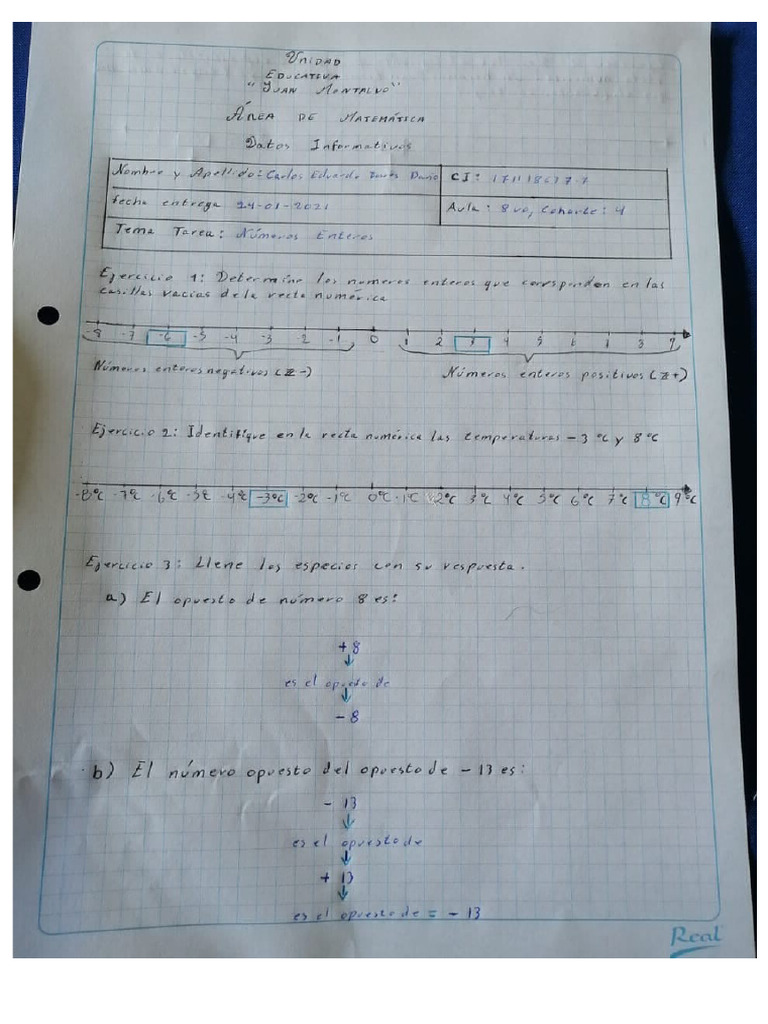 Unidad
Educativa
"Juan Montalvo"
Área de Matemática
Datos Informativos
Nombre y Apellido: Carlos Eduardo Dario CI:
fecha entrega 24-01-2021 Aula: 8vo, Cohorte: 4
Tema Tarea: Números Enteros
Ejercicio 1: Determine los numeros enteros que corresponden en las
casillas vacias de la recta numérica
-8 -7 -6 -5 -4 -3 -2 -1 0 1 2 3 4 5 6 7 8 9
Números enteros negativos (Z-) Números enteros positivos (Z+)
Ejercicio 2: Identifique en la recta numérica las temperaturas -3 °C y 8 °C
-8°C -7°C -6°C -5°C -4°C -3°C -2°C -1°C 0°C 1°C 2°C 3°C 4°C 5°C 6°C 7°C 8°C 9°C
Ejercicio 3: Llene los especios con su respuesta.
a) El opuesto de número 8 es:
+8
es el opuesto de
-8
b) El número opuesto del opuesto de -13 es:
-13
es el opuesto de
+13
es el opuesto de = -13
Real